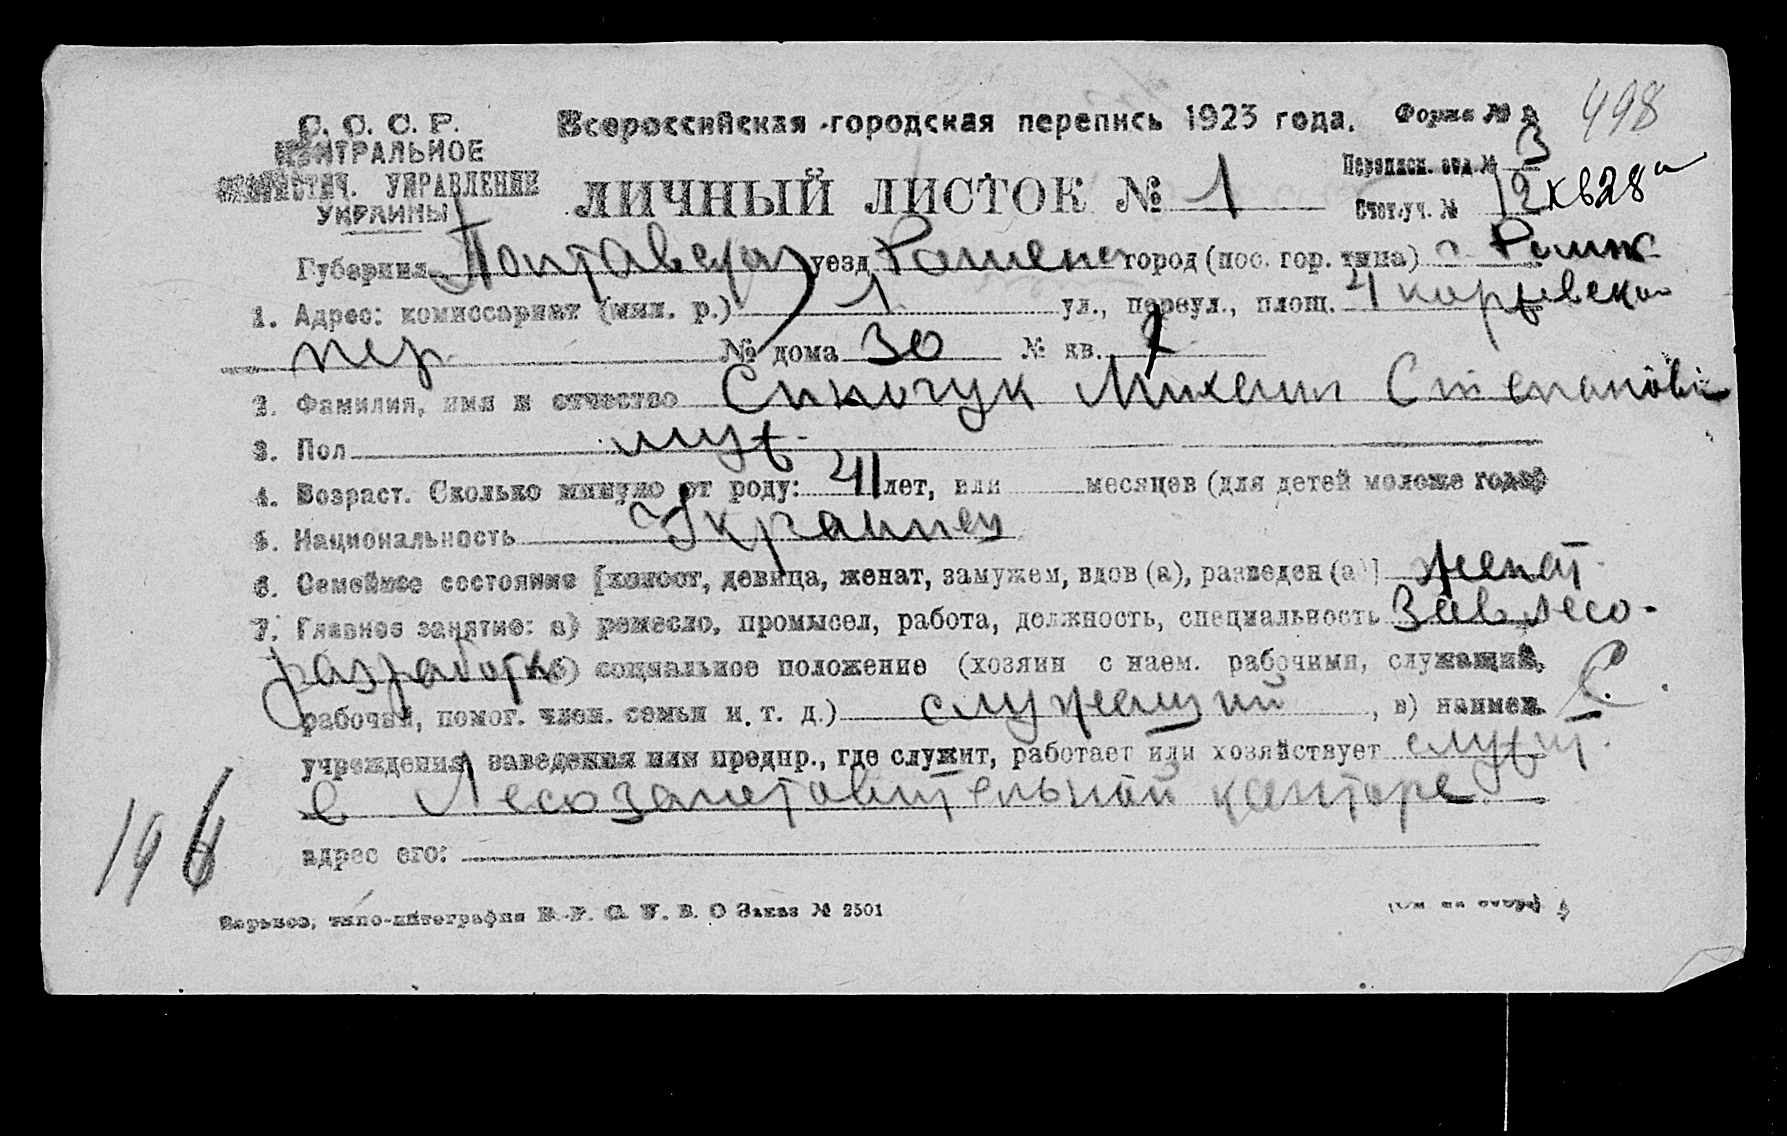 С. С. С. Р. Всероссийская городская перепись 1923 года. Форма № 498
ЦЕНТРАЛЬНОЕ
СТАТИСТИЧ. УПРАВЛЕНИЕ
УКРАИНЫ
ЛИЧНЫЙ ЛИСТОК № 1
Переписн. отд. № 3
Счет. уч. № 12 кв 28
Губерния Полтавская уезд Роменск город (пос. гор. типа) г. Ромн
1. Адрес: комиссариат (мил. р.) 1 ул., переул., площ. 4
пер № дома 30 № кв. 2
2. Фамилия, имя и отчество Михаил Степанови
3. Пол муж.
4. Возраст. Сколько минуло от роду: 41 лет, или месяцев (для детей моложе года)
5. Национальность Украинец
6. Семейное состояние [холост, девица, женат, замужем, вдов (а), разведен (а)] женат.
7. Главное занятие: а) ремесло, промысел, работа, должность, специальность Зав лесо-
разработк б) социальное положение (хозяин с наем. рабочими, служащий,
рабочий, помог. член. семьи и. т. д.) служащий, в) наимен.
С.
учреждения, заведения или предпр., где служит, работает или хозяйствует служит.
в Лесозаготовительной канторе.
адрес его:
196
Харьков, типо-литография Заказ № 2501